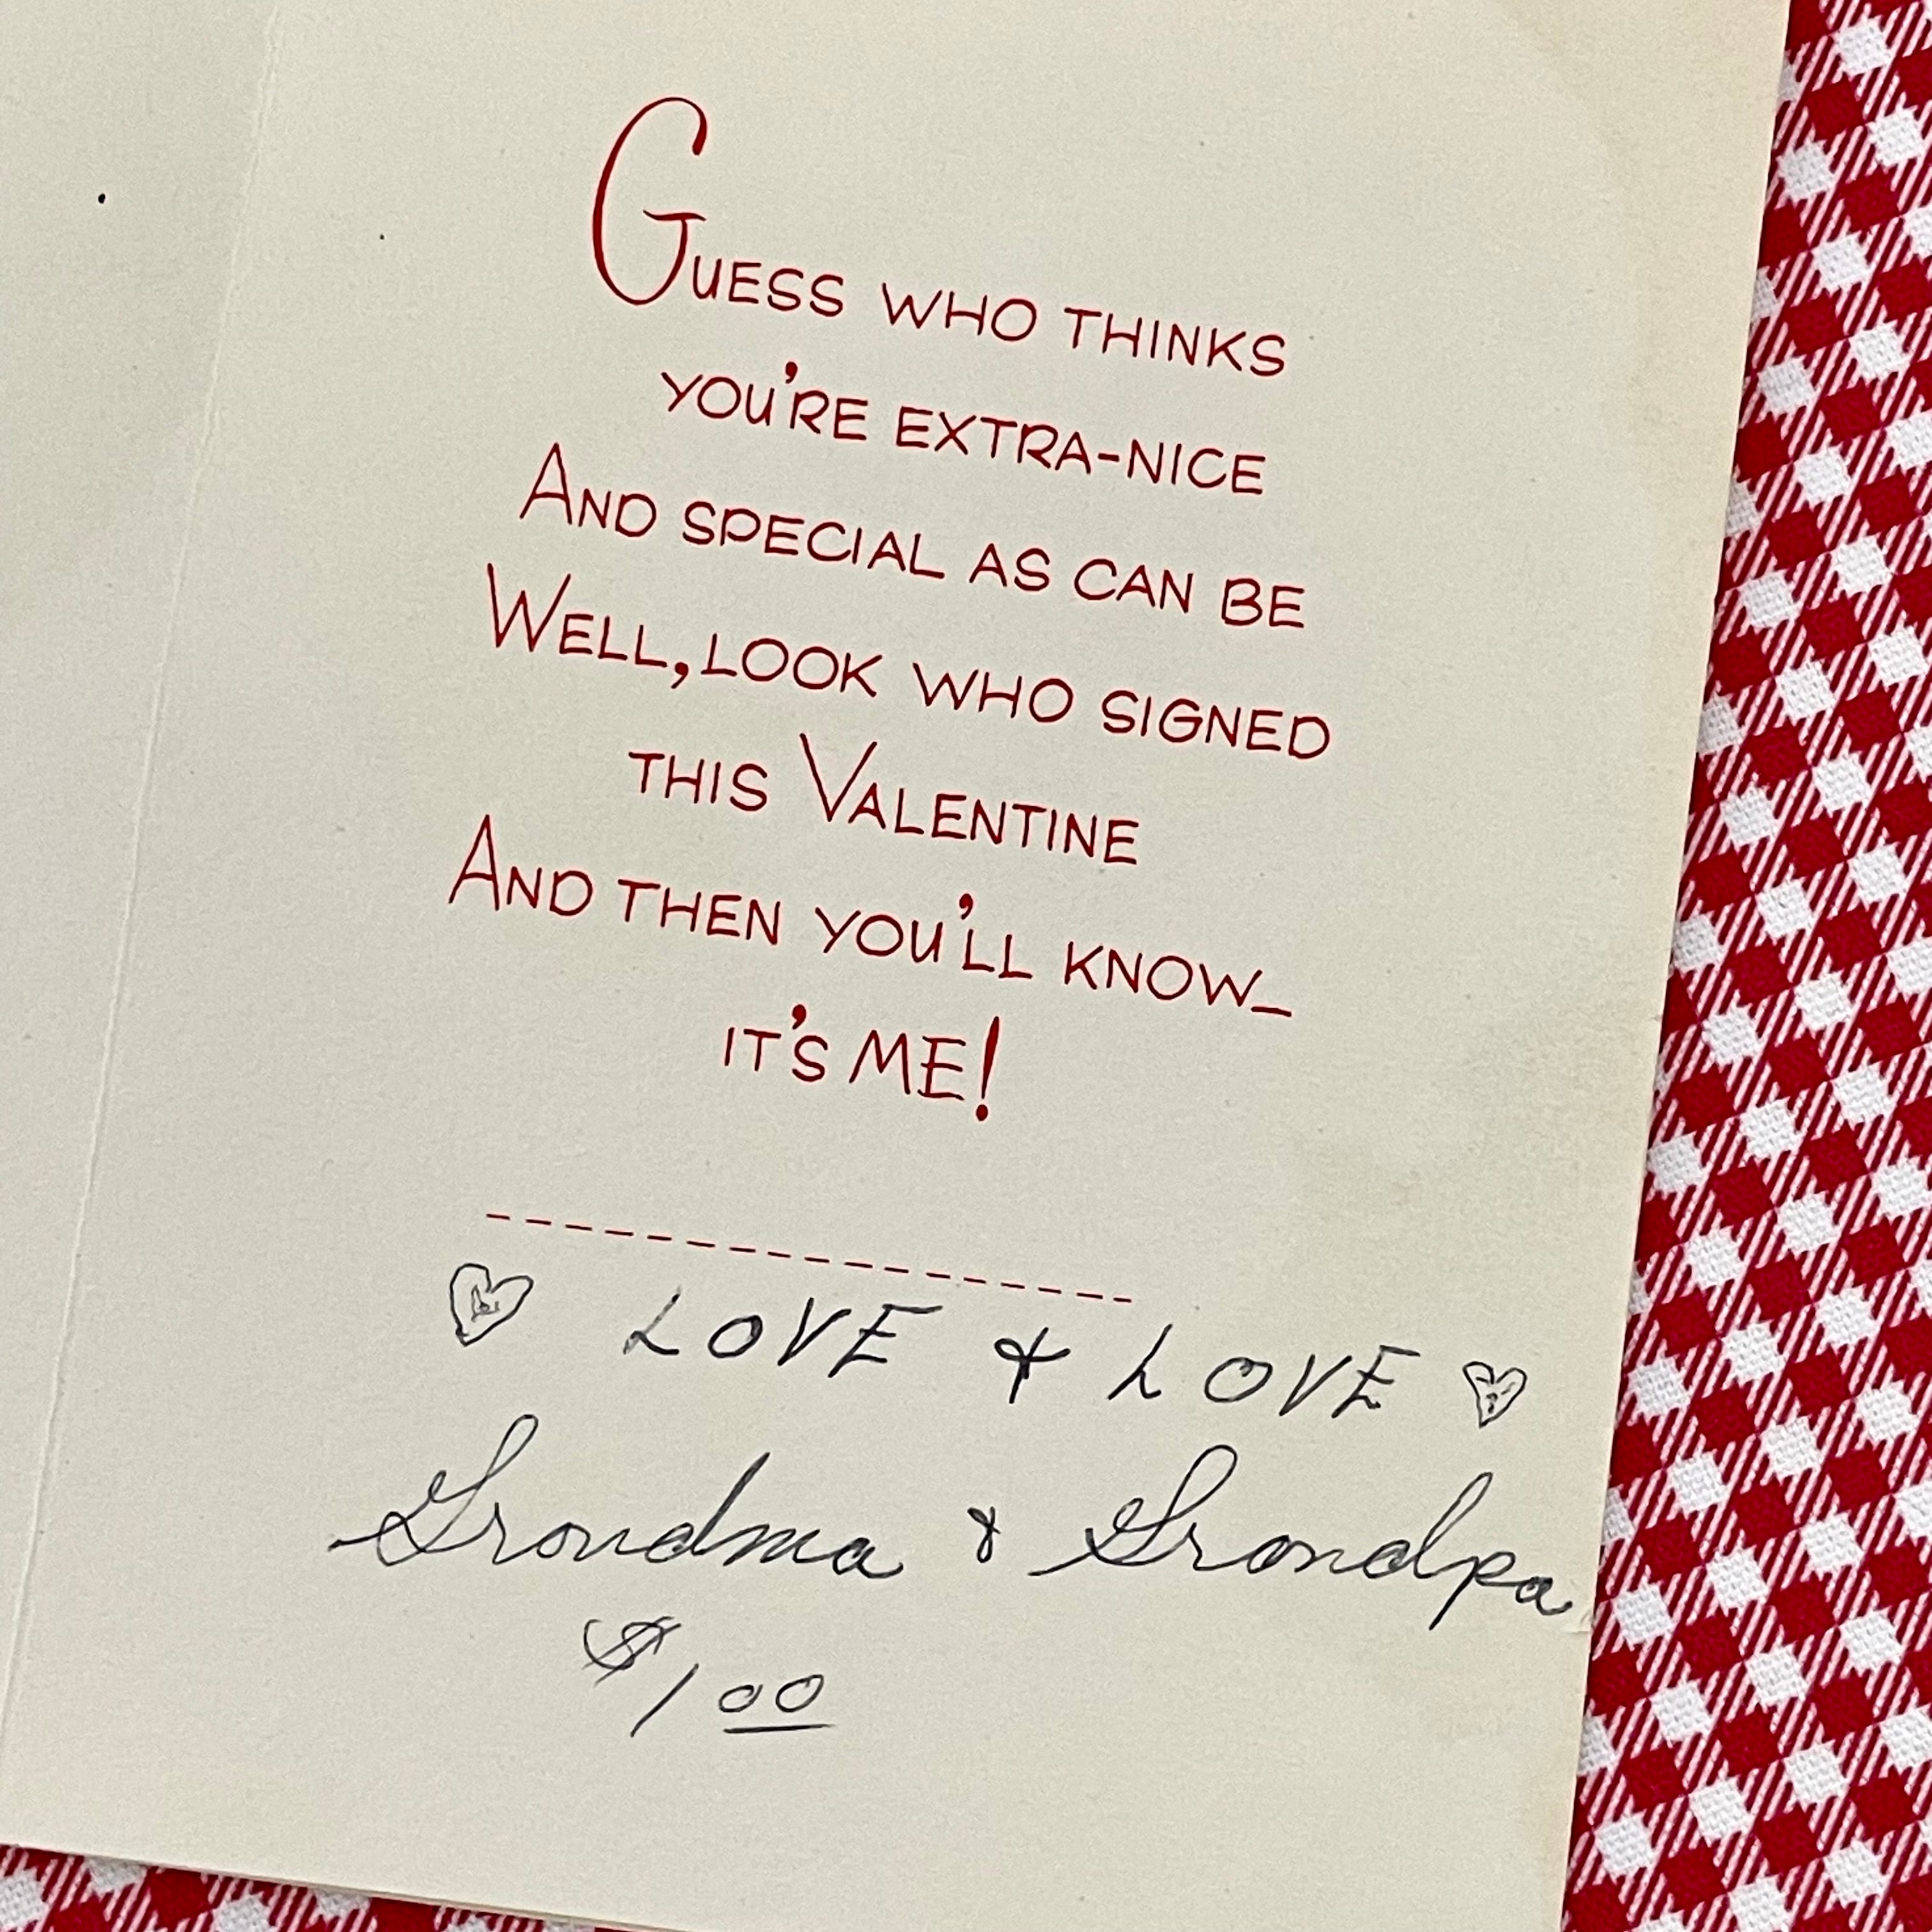 Guess who thinks
you're extra-nice
And special as can be
Well, look who signed
this Valentine
And then you'll know—
it's Me!
♡ LOVE & LOVE ♡
Grandma & Grandpa
$1.00